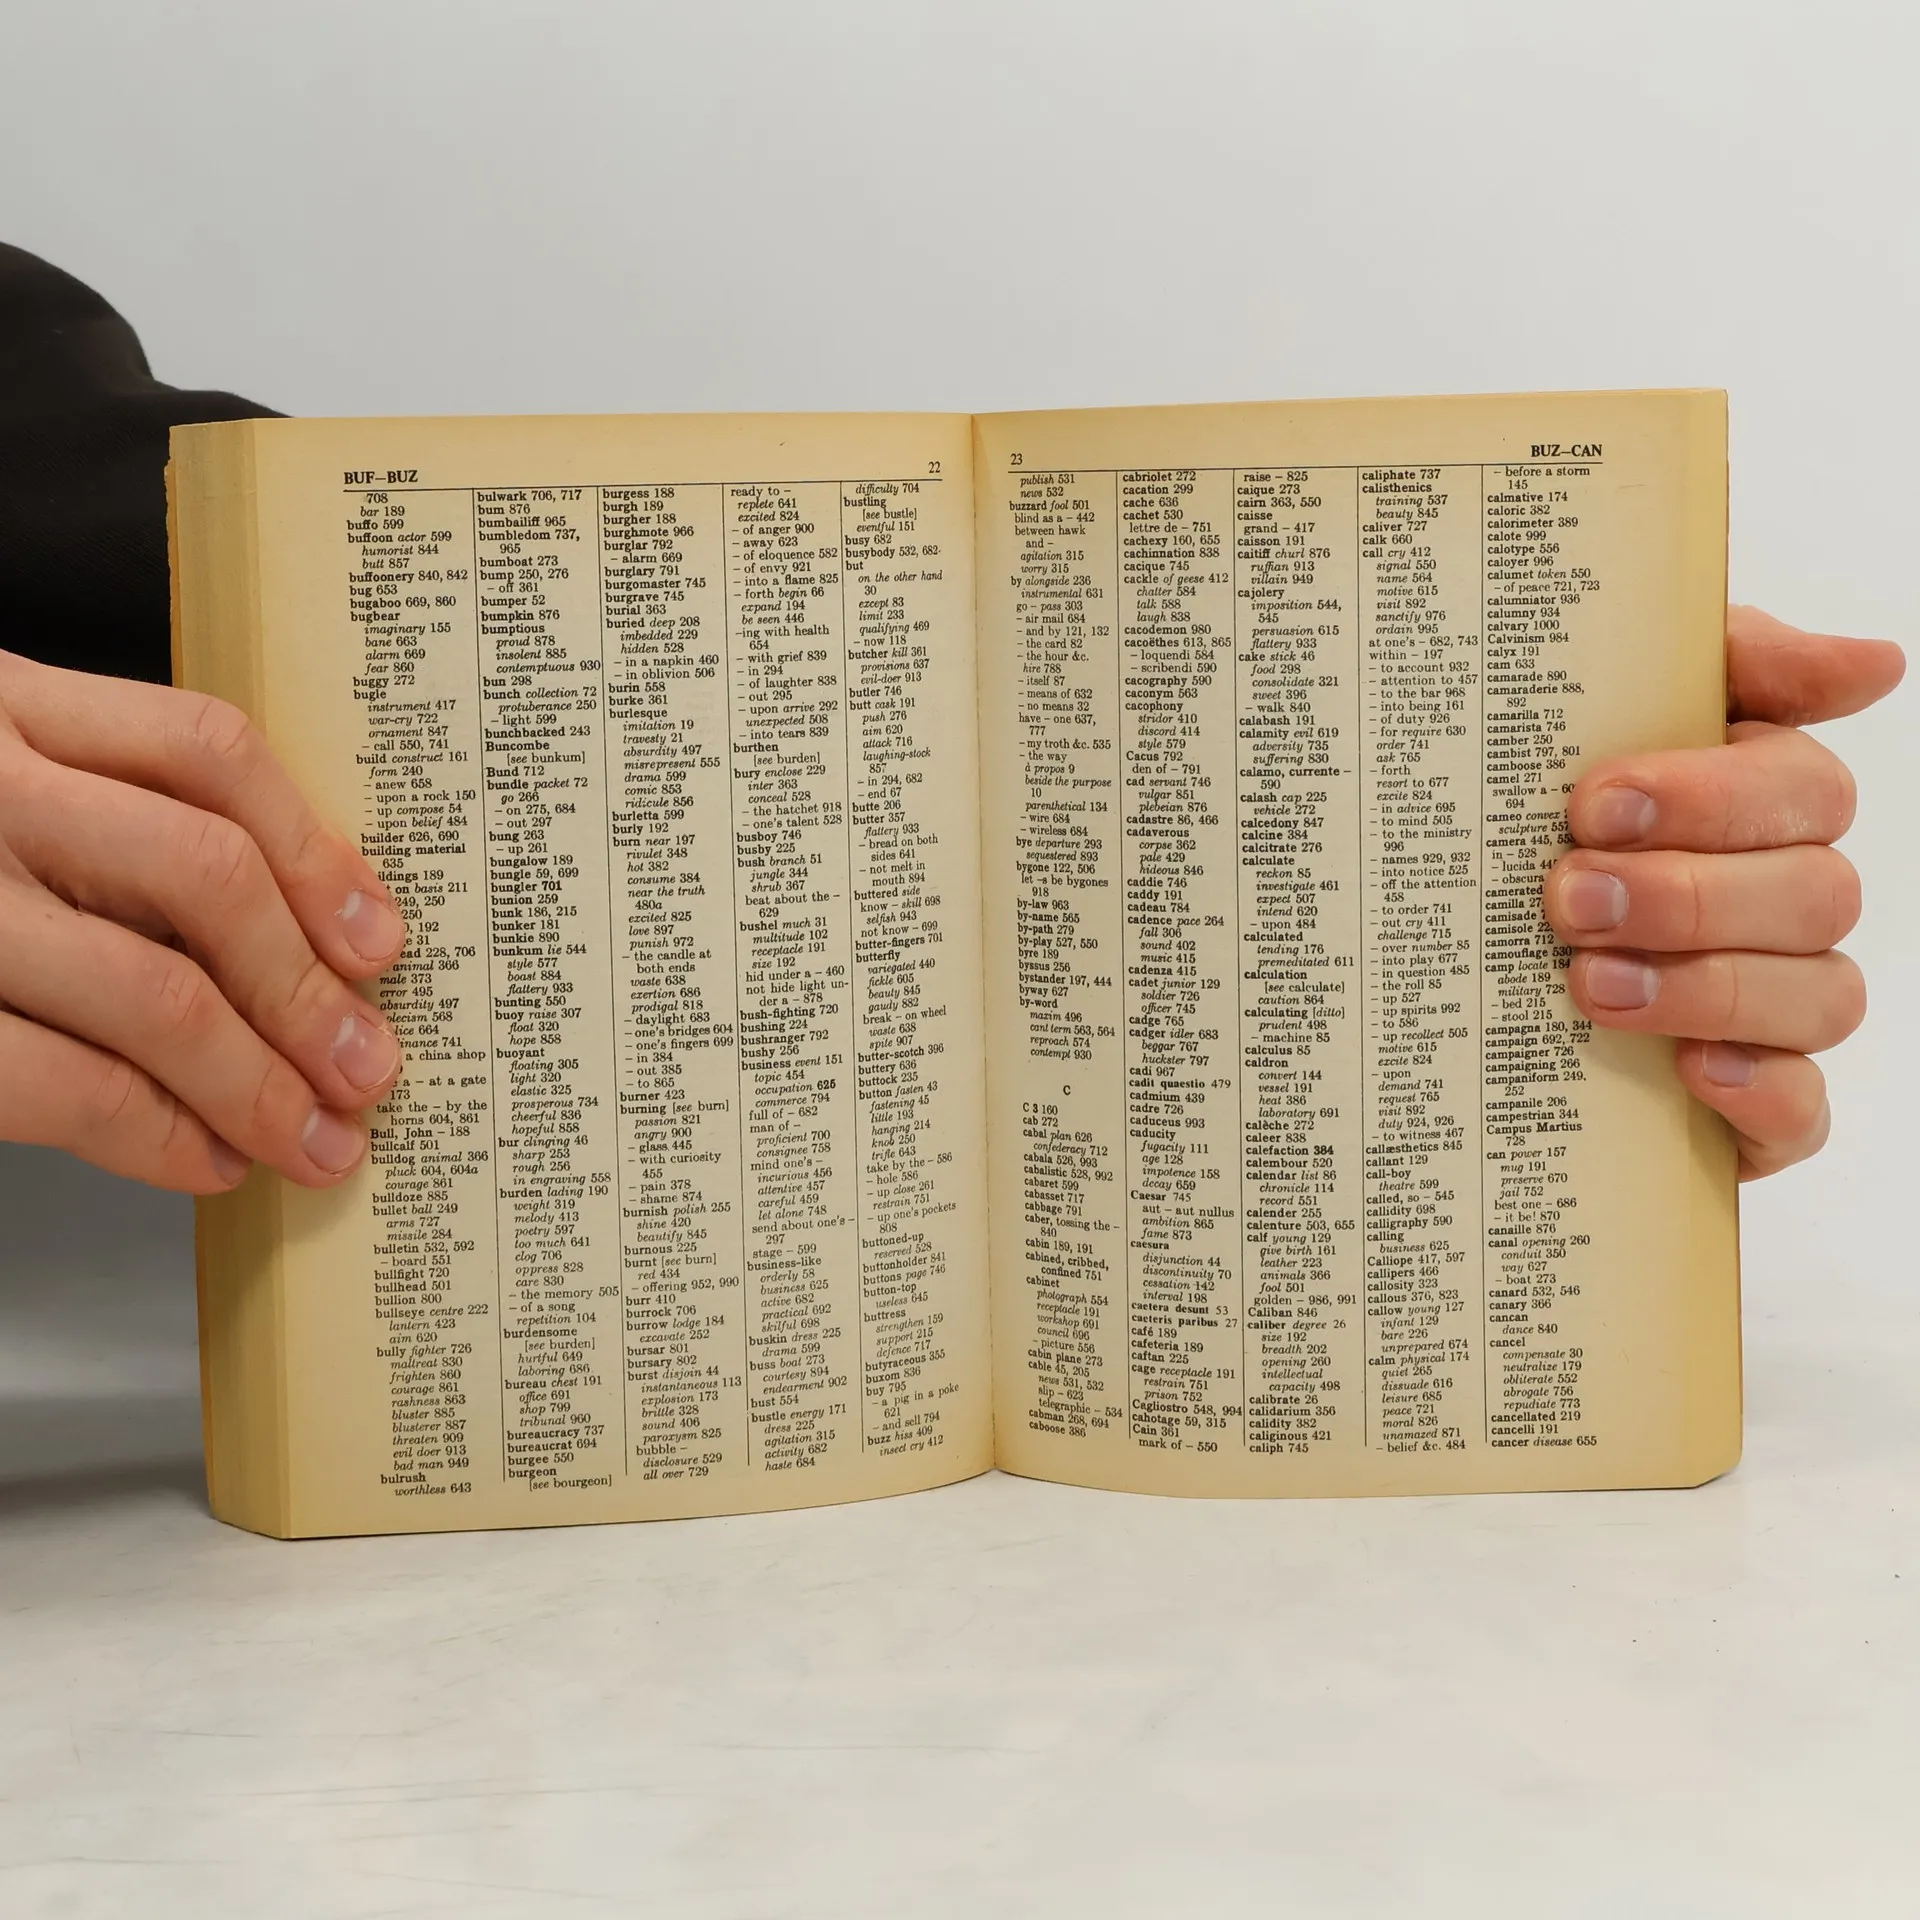 BUF–BUZ
22
708
bar 189
buffo 599
buffoon actor 599
humorist 844
butt 857
buffoonery 840, 842
bug 653
bugaboo 669, 860
bugbear
imaginary 155
bane 663
alarm 669
fear 860
buggy 272
bugle
instrument 417
war-cry 722
ornament 847
– call 550, 741
build construct 161
form 240
– anew 658
– upon a rock 150
– up compose 54
– upon belief 484
builder 626, 690
building material
635
ildings 189
on basis 211
249, 250
250
192
31
ead 228, 706
animal 366
male 373
error 495
absurdity 497
solecism 568
lice 664
finance 741
a china shop
a – at a gate
173
take the – by the
horns 604, 861
Bull, John – 188
bullcalf 501
bulldog animal 366
pluck 604, 604a
courage 861
bulldoze 885
bullet ball 249
arms 727
missile 284
bulletin 532, 592
– board 551
bullfight 720
bullhead 501
bullion 800
bullseye centre 222
lantern 423
aim 620
bully fighter 726
maltreat 830
frighten 860
courage 861
rashness 863
bluster 885
blusterer 887
threaten 909
evil doer 913
bad man 949
bulrush
worthless 643
bulwark 706, 717
bum 876
bumbailiff 965
bumbledom 737,
965
bumboat 273
bump 250, 276
– off 361
bumper 52
bumpkin 876
bumptious
proud 878
insolent 885
contemptuous 930
bun 298
bunch collection 72
protuberance 250
– light 599
bunchbacked 243
Buncombe
[see bunkum]
Bund 712
bundle packet 72
go 266
– on 275, 684
– out 297
bung 263
– up 261
bungalow 189
bungle 59, 699
bungler 701
bunion 259
bunk 186, 215
bunker 181
bunkie 890
bunkum lie 544
style 577
boast 884
flattery 933
bunting 550
buoy raise 307
float 320
hope 858
buoyant
floating 305
light 320
elastic 325
prosperous 734
cheerful 836
hopeful 858
bur clinging 46
sharp 253
rough 256
in engraving 558
burden lading 190
weight 319
melody 413
poetry 597
too much 641
clog 706
oppress 828
care 830
– the memory 505
– of a song
repetition 104
burdensome
[see burden]
hurtful 649
laboring 686
bureau chest 191
office 691
shop 799
tribunal 960
bureaucracy 737
bureaucrat 694
burgee 550
burgeon
[see bourgeon]
burgess 188
burgh 189
burgher 188
burghmote 966
burglar 792
– alarm 669
burglary 791
burgomaster 745
burgrave 745
burial 363
buried deep 208
imbedded 229
hidden 528
– in a napkin 460
– in oblivion 506
burin 558
burke 361
burlesque
imitation 19
travesty 21
absurdity 497
misrepresent 555
drama 599
comic 853
ridicule 856
burletta 599
burly 192
burn near 197
rivulet 348
hot 382
consume 384
near the truth
480a
excited 825
love 897
punish 972
– the candle at
both ends
waste 638
exertion 686
prodigal 818
– daylight 683
– one's bridges 604
– one's fingers 699
– in 384
– out 385
– to 865
burner 423
burning [see burn]
passion 821
angry 900
– glass 445
– with curiosity
455
– pain 378
– shame 874
burnish polish 255
shine 420
beautify 845
burnous 225
burnt [see burn]
red 434
– offering 952, 990
burr 410
burrock 706
burrow lodge 184
excavate 252
bursar 801
bursary 802
burst disjoin 44
instantaneous 113
explosion 173
brittle 328
sound 406
paroxysm 825
bubble –
disclosure 529
all over 729
ready to –
replete 641
excited 824
– of anger 900
– away 623
– of eloquence 582
– of envy 921
– into a flame 825
– forth begin 66
expand 194
be seen 446
–ing with health
654
– with grief 839
– in 294
– of laughter 838
– out 295
– upon arrive 292
unexpected 508
– into tears 839
burthen
[see burden]
bury enclose 229
inter 363
conceal 528
– the hatchet 918
– one's talent 528
busboy 746
busby 225
bush branch 51
jungle 344
shrub 367
beat about the –
629
bushel much 31
multitude 102
receptacle 191
size 192
hid under a – 460
not hide light un-
der a – 878
bush-fighting 720
bushing 224
bushranger 792
bushy 256
business event 151
topic 454
occupation 625
commerce 794
full of – 682
man of –
proficient 700
consignee 758
mind one's –
incurious 456
attentive 457
careful 459
let alone 748
send about one's –
297
stage – 599
business-like
orderly 58
business 625
active 682
practical 692
skilful 698
buskin dress 225
drama 599
buss boat 273
courtesy 894
endearment 902
bust 554
bustle energy 171
dress 225
agitation 315
activity 682
haste 684
difficulty 704
bustling
[see bustle]
eventful 151
busy 682
busybody 532, 682
but
on the other hand
30
except 83
limit 233
qualifying 469
– now 118
butcher kill 361
provisions 637
evil-doer 913
butler 746
butt cask 191
push 276
aim 620
attack 716
laughing-stock
857
– in 294, 682
– end 67
butte 206
butter 357
flattery 933
– bread on both
sides 641
– not melt in
mouth 894
buttered side
know – skill 698
selfish 943
not know – 699
butter-fingers 701
butterfly
variegated 440
fickle 605
beauty 845
gaudy 882
break – on wheel
waste 638
spite 907
butter-scotch 396
buttery 636
buttock 235
button fasten 43
fastening 45
little 193
hanging 214
knob 250
trifle 643
take by the – 586
– hole 586
– up close 261
restrain 751
– up one's pockets
808
buttoned-up
reserved 528
buttonholder 841
buttons page 746
button-top
useless 645
buttress
strengthen 159
support 215
defence 717
butyraceous 355
buxom 836
buy 795
– a pig in a poke
621
– and sell 794
buzz hiss 409
insect cry 412
23
BUZ–CAN
publish 531
news 532
buzzard fool 501
blind as a – 442
between hawk
and –
agitation 315
worry 315
by alongside 236
instrumental 631
go – pass 303
– air mail 684
– and by 121, 132
– the card 82
– the hour &c.
hire 788
– itself 87
– means of 632
– no means 32
have – one 637,
777
– my troth &c. 535
– the way
à propos 9
beside the purpose
10
parenthetical 134
– wire 684
– wireless 684
bye departure 293
sequestered 893
bygone 122, 506
let –s be bygones
918
by-law 963
by-name 565
by-path 279
by-play 527, 550
byre 189
byssus 256
bystander 197, 444
byway 627
by-word
maxim 496
cant term 563, 564
reproach 574
contempt 930
C
C 3 160
cab 272
cabal plan 626
confederacy 712
cabala 526, 993
cabalistic 528, 992
cabaret 599
cabasset 717
cabbage 791
caber, tossing the –
840
cabin 189, 191
cabined, cribbed,
confined 751
cabinet
photograph 554
receptacle 191
workshop 691
council 696
– picture 556
cabin plane 273
cable 45, 205
news 531, 532
slip – 623
telegraphic – 534
cabman 268, 694
caboose 386
cabriolet 272
cacation 299
cache 636
cachet 530
lettre de – 751
cachexy 160, 655
cachinnation 838
cacique 745
cackle of geese 412
chatter 584
talk 588
laugh 838
cacodemon 980
cacoëthes 613, 865
– loquendi 584
– scribendi 590
cacography 590
caconym 563
cacophony
stridor 410
discord 414
style 579
Cacus 792
den of – 791
cad servant 746
vulgar 851
plebeian 876
cadastre 86, 466
cadaverous
corpse 362
pale 429
hideous 846
caddie 746
caddy 191
cadeau 784
cadence pace 264
fall 306
sound 402
music 415
cadenza 415
cadet junior 129
soldier 726
officer 745
cadge 765
cadger idler 683
beggar 767
huckster 797
cadi 967
cadit quaestio 479
cadmium 439
cadre 726
caduceus 993
caducity
fugacity 111
age 128
impotence 158
decay 659
Caesar 745
aut – aut nullus
ambition 865
fame 873
caesura
disjunction 44
discontinuity 70
cessation 142
interval 198
caetera desunt 53
caeteris paribus 27
café 189
cafeteria 189
caftan 225
cage receptacle 191
restrain 751
prison 752
Cagliostro 548, 994
cahotage 59, 315
Cain 361
mark of – 550
raise – 825
caique 273
cairn 363, 550
caisse
grand – 417
caisson 191
caitiff churl 876
ruffian 913
villain 949
cajolery
imposition 544,
545
persuasion 615
flattery 933
cake stick 46
food 298
consolidate 321
sweet 396
– walk 840
calabash 191
calamity evil 619
adversity 735
suffering 830
calamo, currente –
590
calash cap 225
vehicle 272
calcedony 847
calcine 384
calcitrate 276
calculate
reckon 85
investigate 461
expect 507
intend 620
– upon 484
calculated
tending 176
premeditated 611
calculation
[see calculate]
caution 864
calculating [ditto]
prudent 498
– machine 85
calculus 85
caldron
convert 144
vessel 191
heat 386
laboratory 691
calèche 272
caleer 838
calefaction 384
calembour 520
calendar list 86
chronicle 114
record 551
calender 255
calenture 503, 655
calf young 129
give birth 161
leather 223
animals 366
fool 501
golden – 986, 991
Caliban 846
caliber degree 26
size 192
breadth 202
opening 260
intellectual
capacity 498
calibrate 26
calidarium 356
calidity 382
caliginous 421
caliph 745
caliphate 737
calisthenics
training 537
beauty 845
caliver 727
calk 660
call cry 412
signal 550
name 564
motive 615
visit 892
sanctify 976
ordain 995
at one's – 682, 743
within – 197
– to account 932
– attention to 457
– to the bar 968
– into being 161
– of duty 926
– for require 630
order 741
ask 765
– forth
resort to 677
excite 824
– in advice 695
– to mind 505
– to the ministry
996
– names 929, 932
– into notice 525
– off the attention
458
– to order 741
– out cry 411
challenge 715
– over number 85
– into play 677
– in question 485
– the roll 85
– up 527
– up spirits 992
– to 586
– up recollect 505
motive 615
excite 824
– upon
demand 741
request 765
visit 892
duty 924, 926
– to witness 467
callæsthetics 845
callant 129
call-boy
theatre 599
called, so – 545
callidity 698
calligraphy 590
calling
business 625
Calliope 417, 597
callipers 466
callosity 323
callous 376, 823
callow young 127
infant 129
bare 226
unprepared 674
calm physical 174
quiet 265
dissuade 616
leisure 685
peace 721
moral 826
unamazed 871
– belief &c. 484
– before a storm
145
calmative 174
caloric 382
calorimeter 389
calote 999
calotype 556
caloyer 996
calumet token 550
– of peace 721, 723
calumniator 936
calumny 934
calvary 1000
Calvinism 984
calyx 191
cam 633
camarade 890
camaraderie 888,
892
camarilla 712
camarista 746
camber 250
cambist 797, 801
camboose 386
camel 271
swallow a –
694
cameo convex
sculpture 557
camera 445,
in – 528
– lucida
– obscura
camerated
camilla
camisade
camisole
camorra 712
camouflage 530
camp locate 184
abode 189
military 728
– bed 215
– stool 215
campagna 180, 344
campaign 692, 722
campaigner 726
campaigning 266
campaniform 249,
252
campanile 206
campestrian 344
Campus Martius
728
can power 157
mug 191
preserve 670
jail 752
best one – 686
– it be! 870
canaille 876
canal opening 260
conduit 350
way 627
– boat 273
canard 532, 546
canary 366
cancan
dance 840
cancel
compensate 30
neutralize 179
obliterate 552
abrogate 756
repudiate 773
cancellated 219
cancelli 191
cancer disease 655